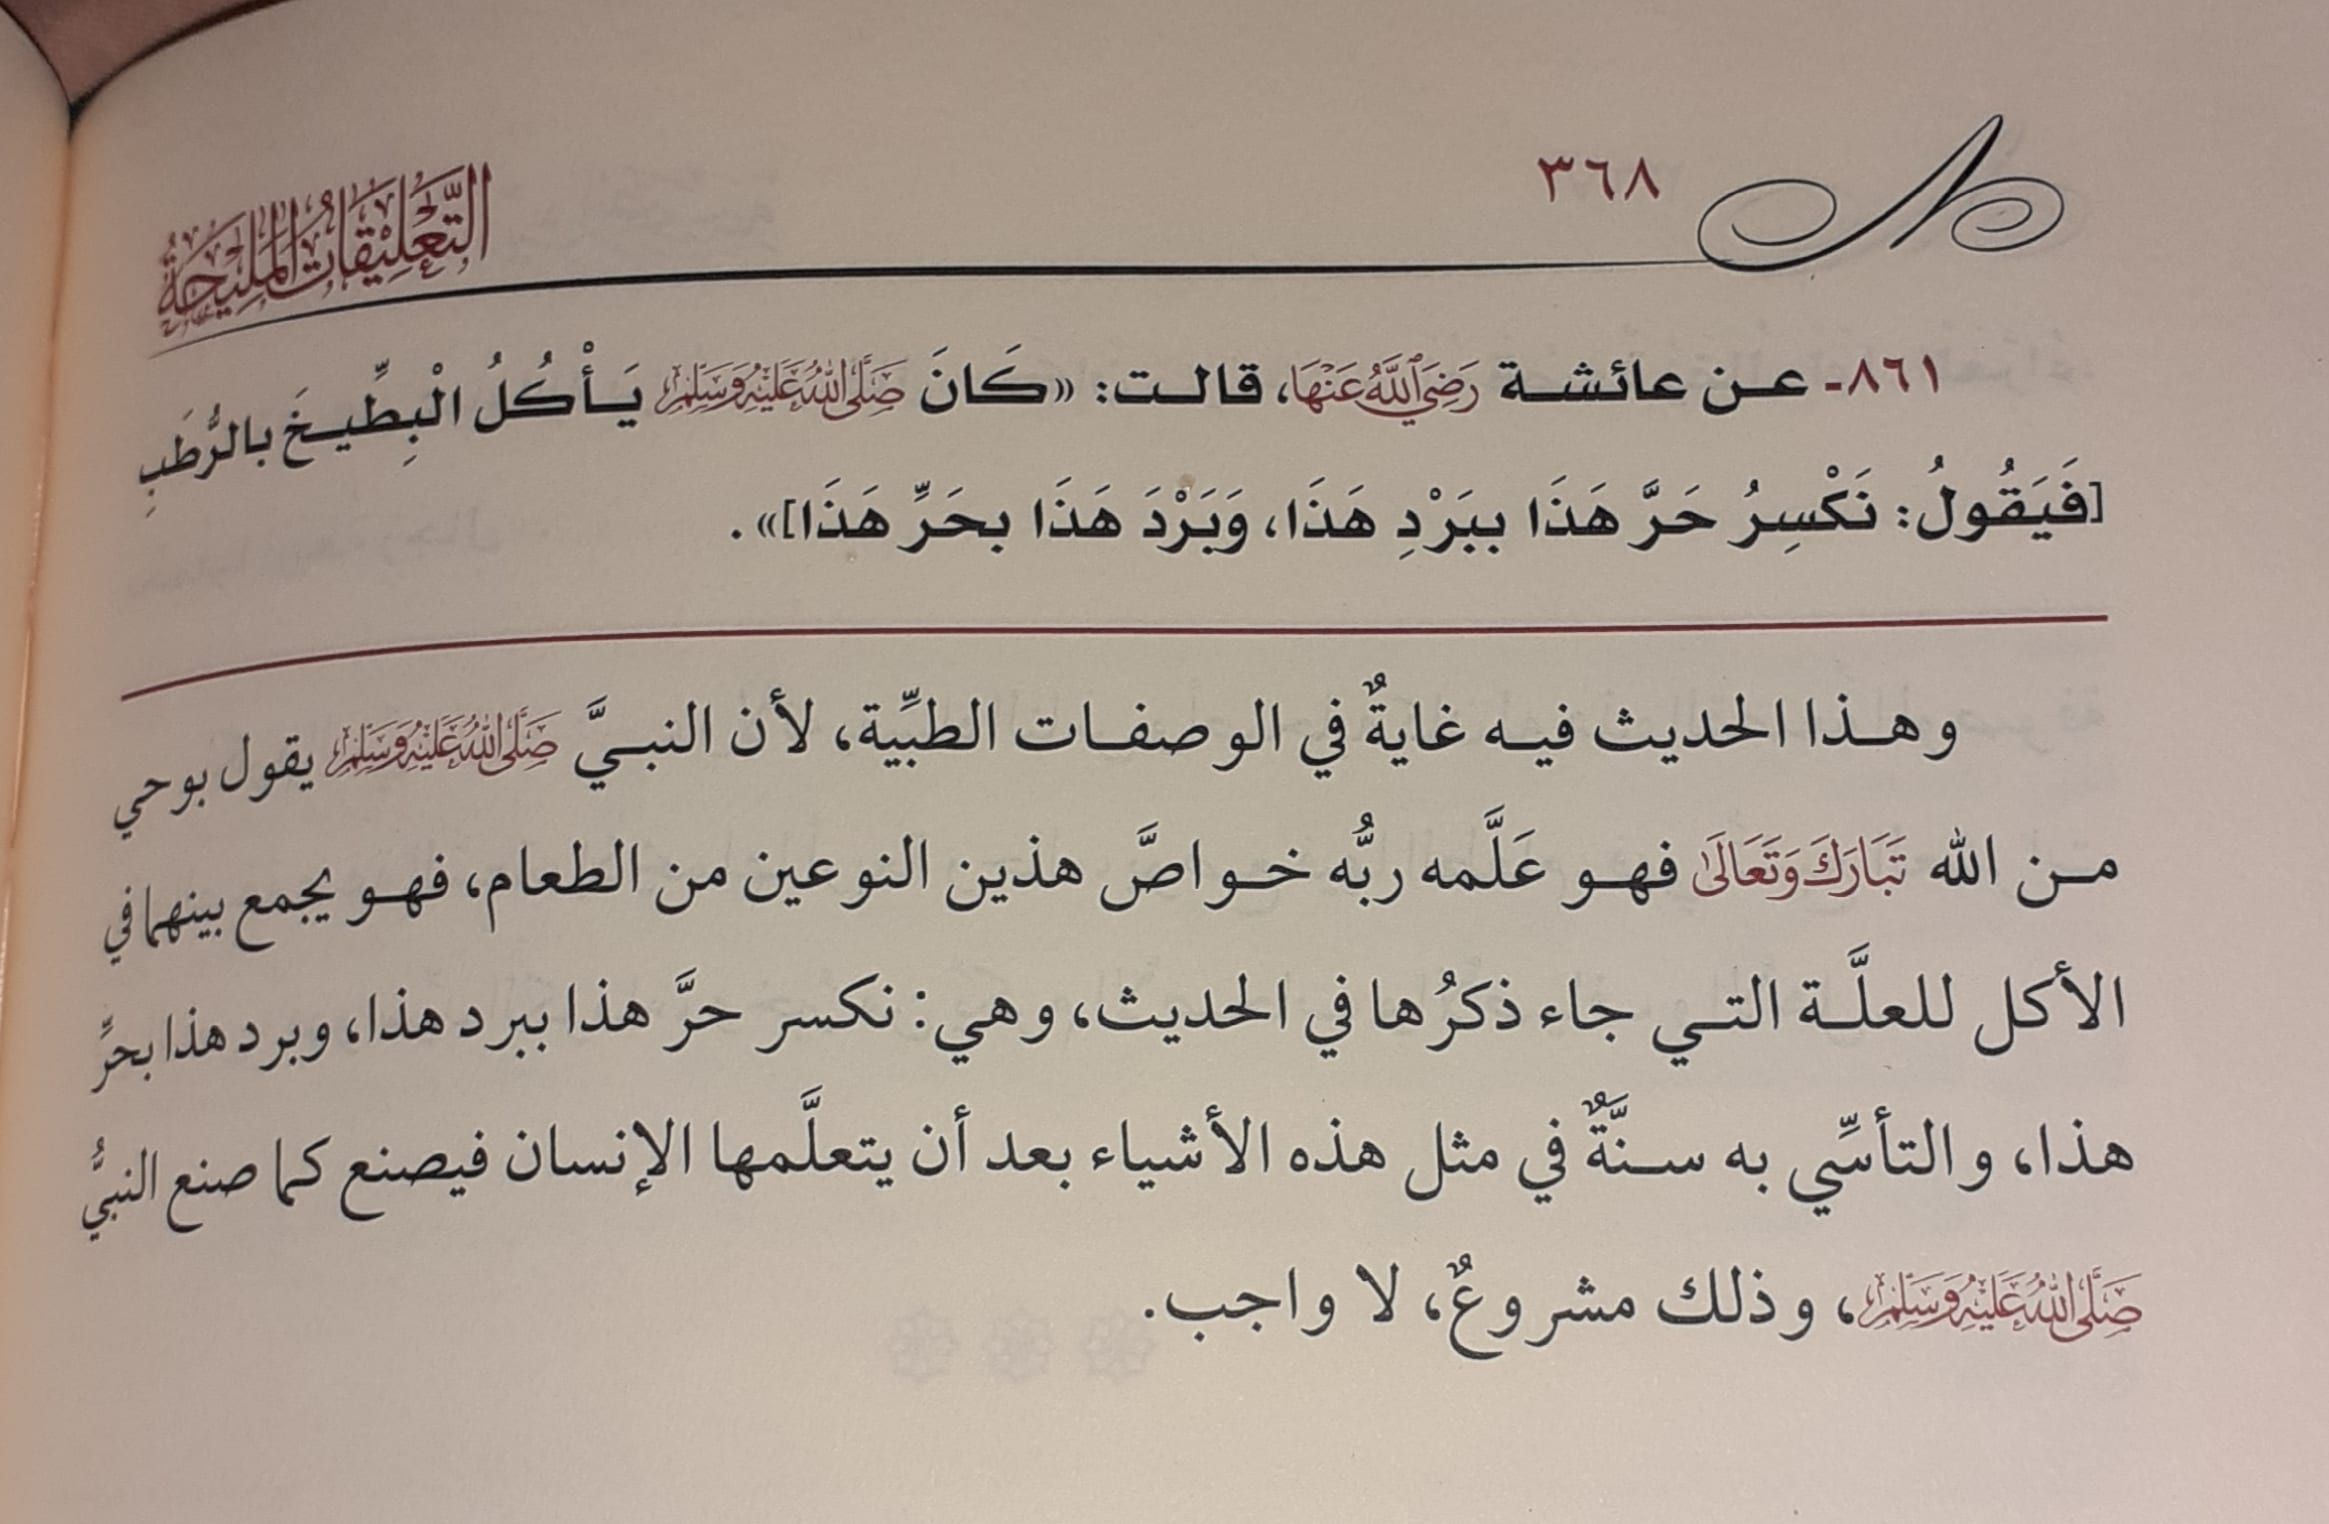 ٣٦٨
التَّعْلِيْقَاتُ المَلِيْحَةُ
٨٦١- عـن عائشـة رَضِيَ اللَّهُ عَنْهَا، قالـت: «كَانَ صَلَّى اللَّهُ عَلَيْهِ وَسَلَّمَ يَـأْكُلُ الْبِطِّيـخَ بالرُّطَبِ
[فَيَقُولُ: نَكْسِرُ حَرَّ هَذَا ببَرْدِ هَذَا، وَبَرْدَ هَذَا بحَرِّ هَذَا]».
وهـذا الحديث فيـه غايةٌ في الوصفـات الطبِّية، لأن النبـيَّ صَلَّى اللَّهُ عَلَيْهِ وَسَلَّمَ يقول بوحي
مـن الله تَبَارَكَ وَتَعَالَى فهـو عَلَّمه ربُّه خـواصَّ هذين النوعين من الطعام، فهـو يجمع بينهما في
الأكل للعلَّـة التـي جاء ذكرُها في الحديث، وهي: نكسر حرَّ هذا ببرد هذا، وبرد هذا بحرِّ
هذا، والتأسِّي به سـنَّةٌ في مثل هذه الأشياء بعد أن يتعلَّمها الإنسان فيصنع كما صنع النبيُّ
صَلَّى اللَّهُ عَلَيْهِ وَسَلَّمَ، وذلك مشروعٌ، لا واجب.